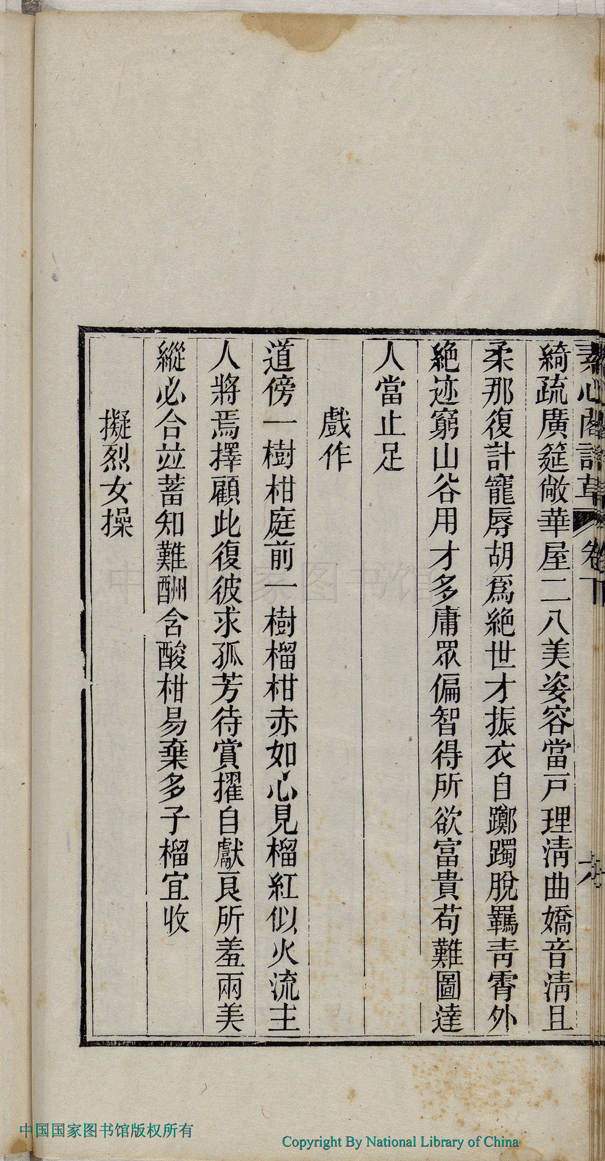 素心閣詩草 卷下
綺疏廣筵敞華屋二八美姿容當戸理淸曲嬌音淸且
柔那復計寵辱胡爲絕世才振衣自躑躅脫羈靑霄外
絕迹窮山谷用才多庸眾偏智得所欲富貴苟難圖達
人當止足
戲作
道傍一樹柑庭前一樹榴柑赤如心見榴紅似火流主
人將焉擇顧此復彼求孤芳待賞擢自獻良所羞兩美
縱必合竝蓄知難酬含酸柑易棄多子榴宜收
擬烈女操
中国国家图书馆
中国国家图书馆版权所有
Copyright By National Library of China